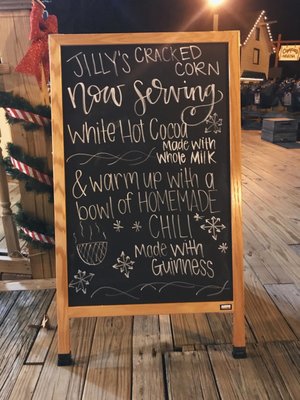 JILLY'S CRACKED
CORN
now serving
White Hot Cocoa
Made with
Whole Milk
& warm up with a
bowl of HOMEMADE
CHILI
Made with
Guinness